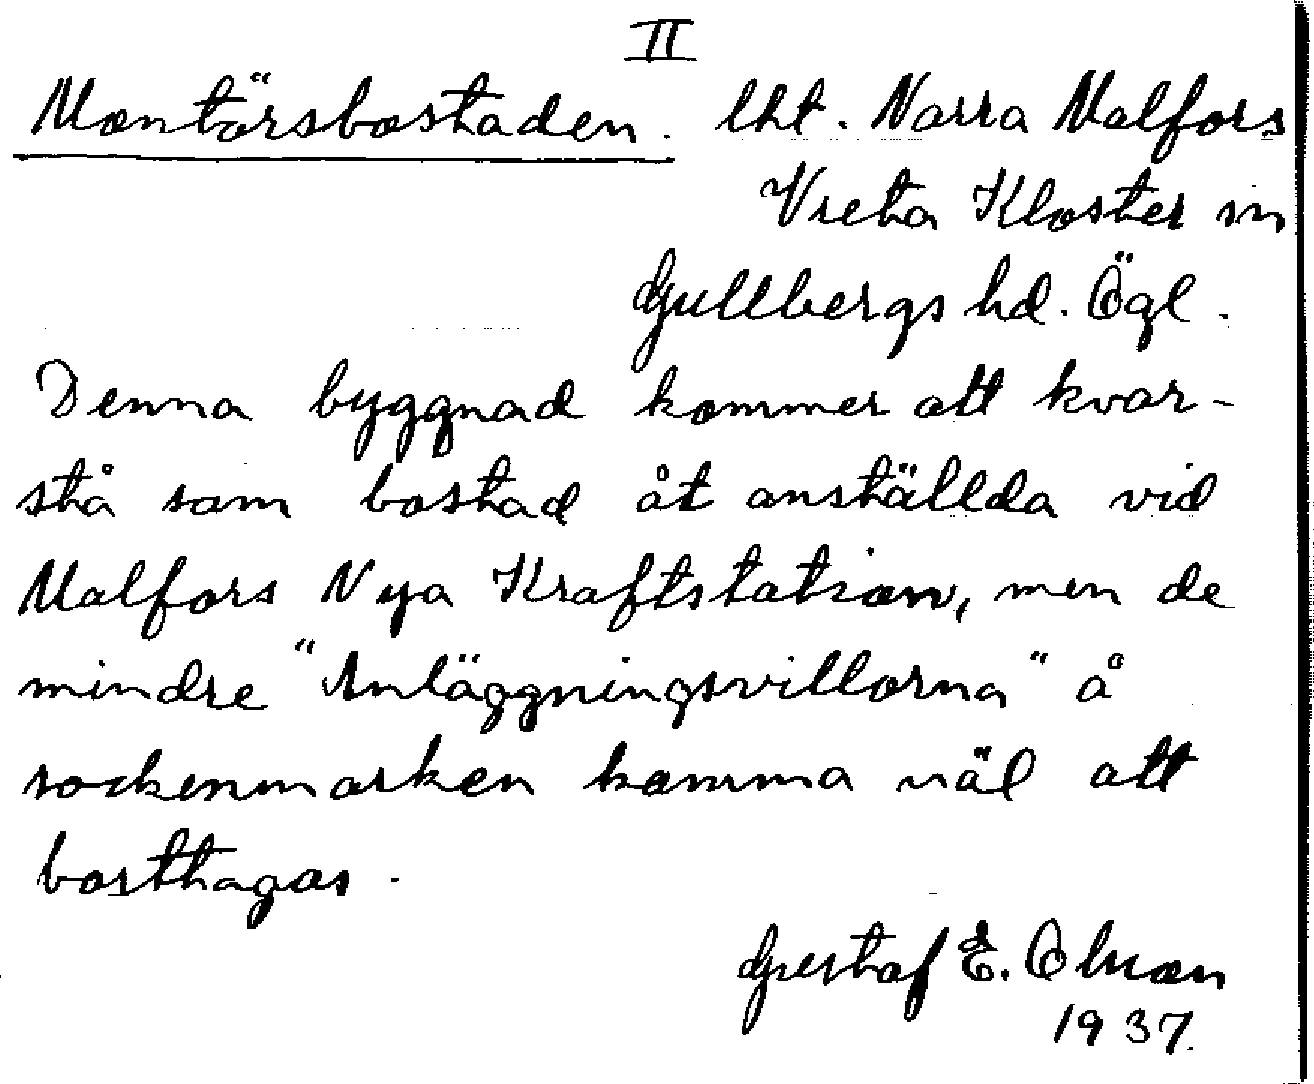 II
Montörsbostaden. lht. Norra Malfors
Vreta Kloster sn
Gullbergs hd. Ögl.
Denna byggnad kommer att kvar-
stå som bostad åt anställda vid
Malfors Nya Kraftstation, men de
mindre "Anläggningsvillorna" å
sockenmarken komma väl att
borttagas.
Gustaf E. Olson
1937.